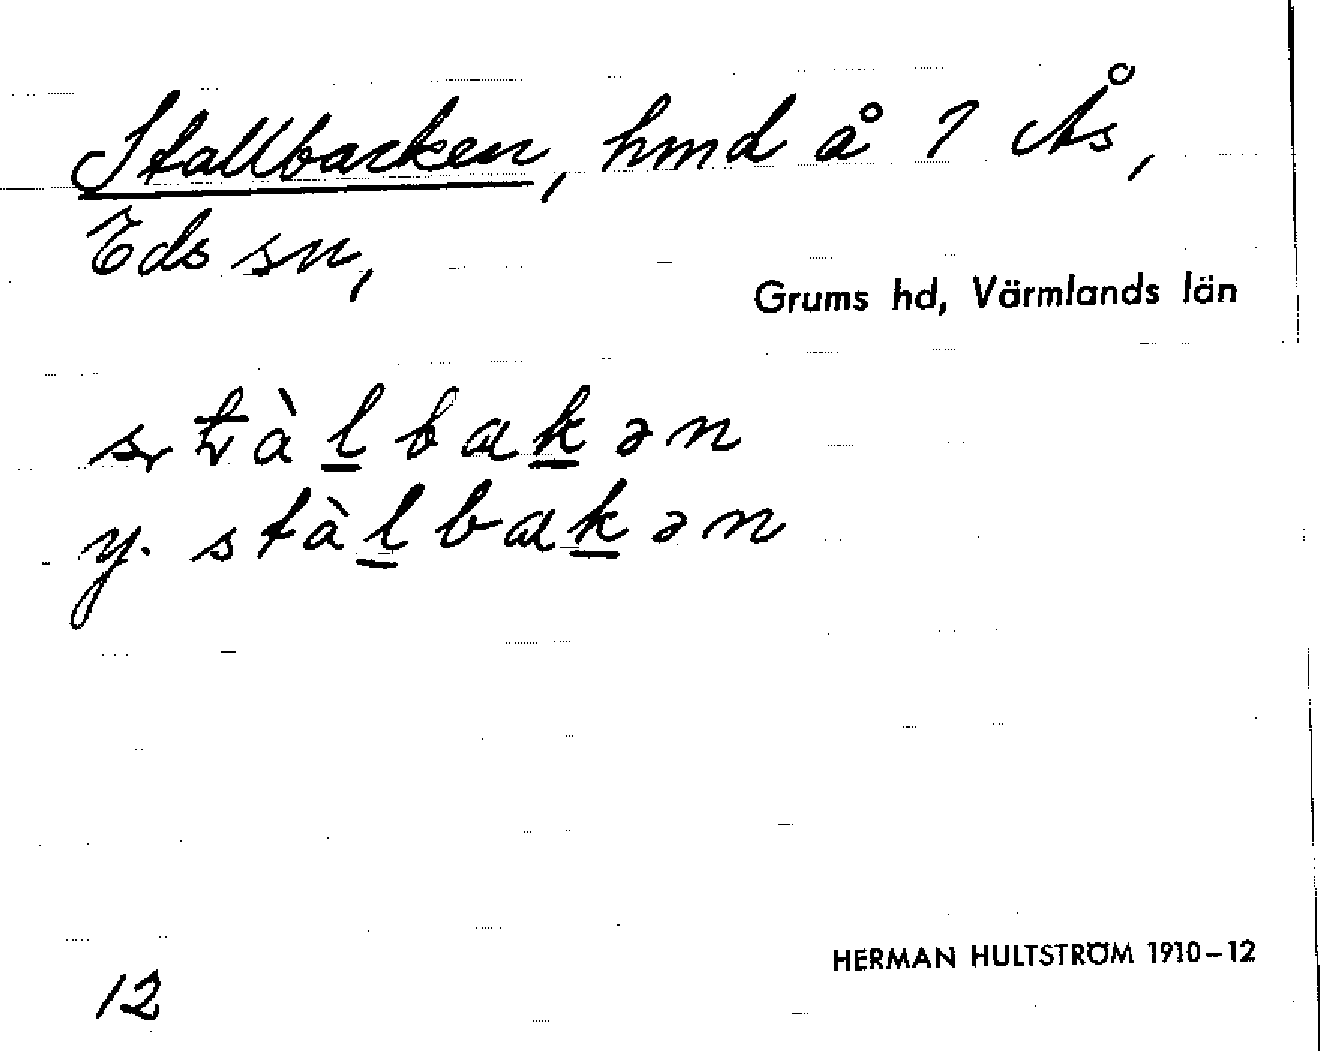 Stallbacken, hmd å 1 Ås,
Eds sn,
Grums hd, Värmlands län
stàlbakən
y. stàlbakən
HERMAN HULTSTRÖM 1910–12
12